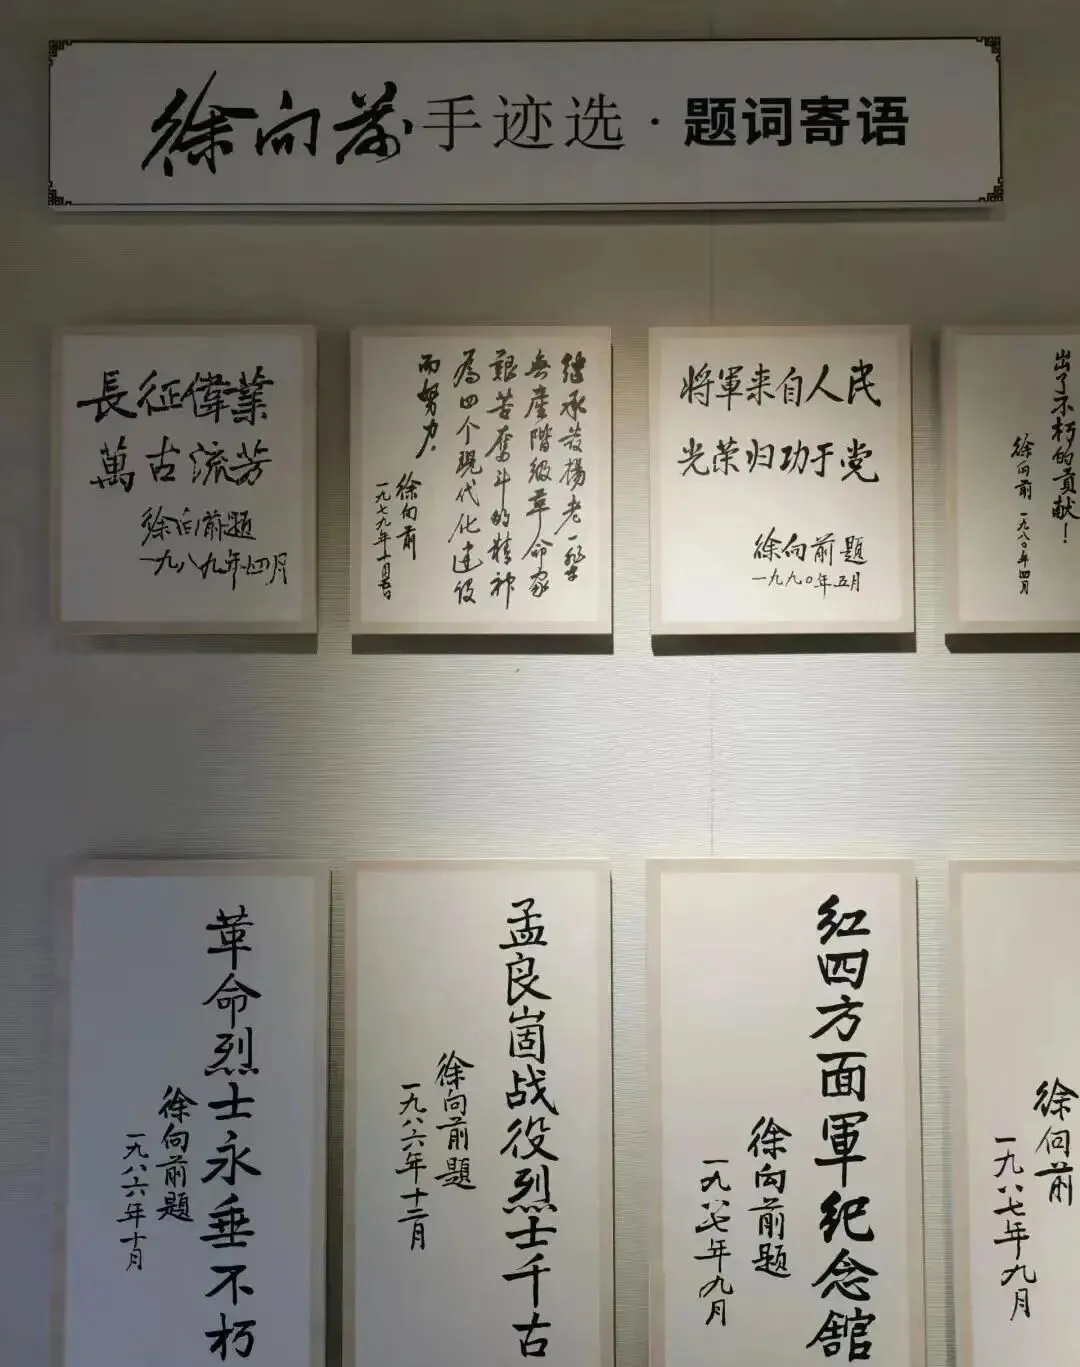 徐向前手迹选·题词寄语
長征偉業
萬古流芳
徐向前題
一九八九年四月
继承发揚老一輩
無產階級革命家
艱苦奮斗的精神
為四个現代化建设
而努力.
徐向前
一九七九年
将軍来自人民
光荣归功于党
徐向前題
一九九〇年五月
出了不朽的貢献！
徐向前
一九八〇年四月
革命烈士永垂不朽
徐向前題
一九八六年十月
孟良崮战役烈士千古
徐向前題
一九八六年十二月
红四方面軍纪念舘
徐向前题
一九八七年九月
徐向前
一九八七年九月